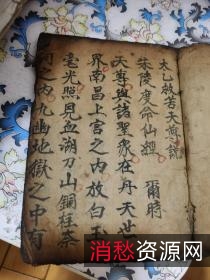 太乙救苦天尊說
朱陵度命仙經
爾時
天尊與諸聖衆在丹天世
界南昌上宫之内放白玉
毫光照見血湖刀山銅柱
之内九幽地獄之中有
消愁文玩网
www.xiaochou.net